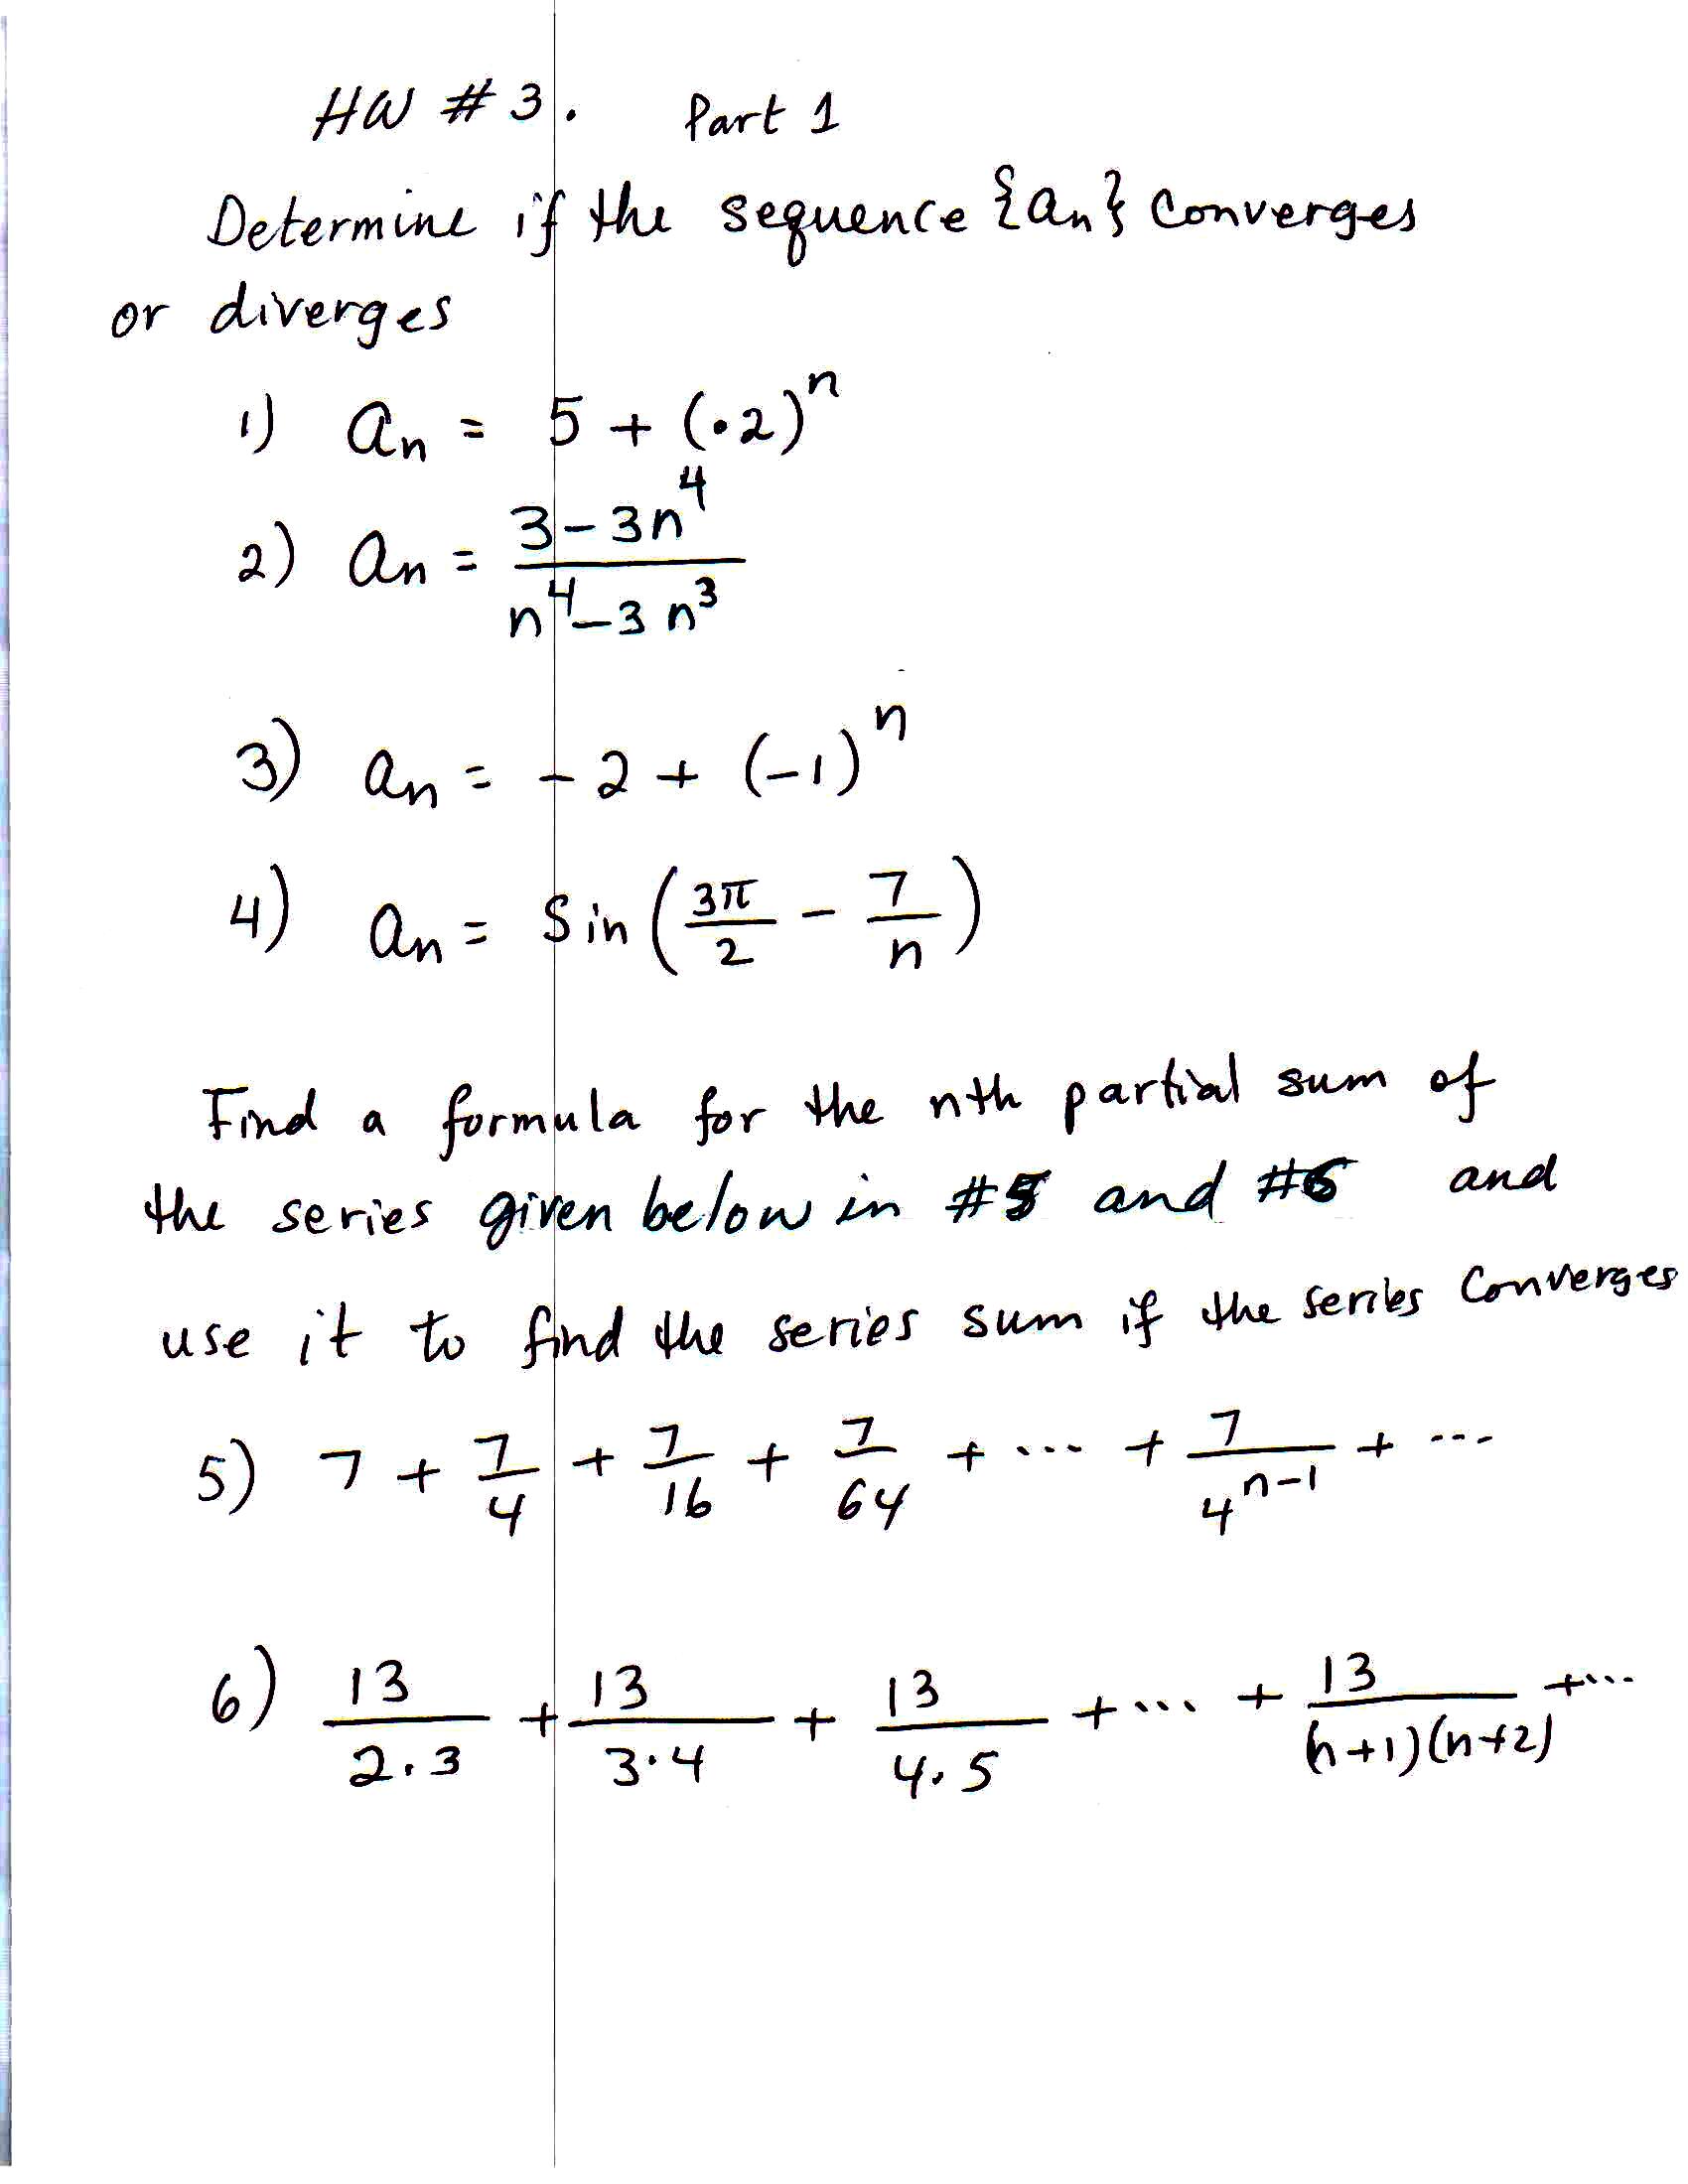 HW # 3. Part 1
Determine if the sequence {an} Converges
or diverges
1) an = 5 + (.2)^n
2) an = (3-3n^4)/(n^4-3n^3)
3) an = -2 + (-1)^n
4) an = Sin(3π/2 - 7/n)
Find a formula for the nth partial sum of
the series given below in #5 and #6 and
use it to find the series sum if the series Converges
5) 7 + 7/4 + 7/16 + 7/64 + ... + 7/4^(n-1) + ---
6) 13/(2.3) + 13/(3.4) + 13/(4.5) + ... + 13/((n+1)(n+2)) + ...